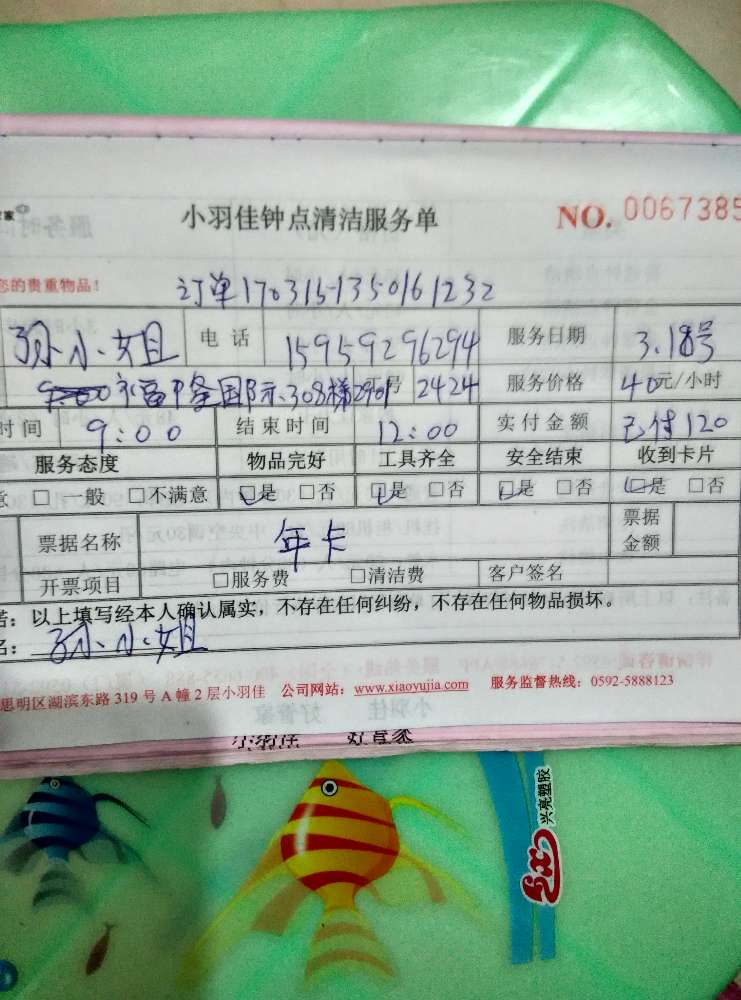 小羽佳钟点清洁服务单 NO. 0067385
您的贵重物品! 订单170315-1350161232
孙小姐 电话 15959292694 服务日期 3.18号
308梯2901 号 2424 服务价格 40元/小时
时间 9:00 结束时间 12:00 实付金额 已付120
服务态度 物品完好 工具齐全 安全结束 收到卡片
意 □一般 □不满意 □是 □否 □是 □否 □是 □否 □是 □否
票据名称 年卡 票据金额
开票项目 □服务费 □清洁费 客户签名
诺：以上填写经本人确认属实，不存在任何纠纷，不存在任何物品损坏。
名：孙小姐
思明区湖滨东路319号A幢2层小羽佳 公司网站：www.xiaoyujia.com 服务监督热线：0592-5888123
小羽佳 好管家
兴亮塑胶